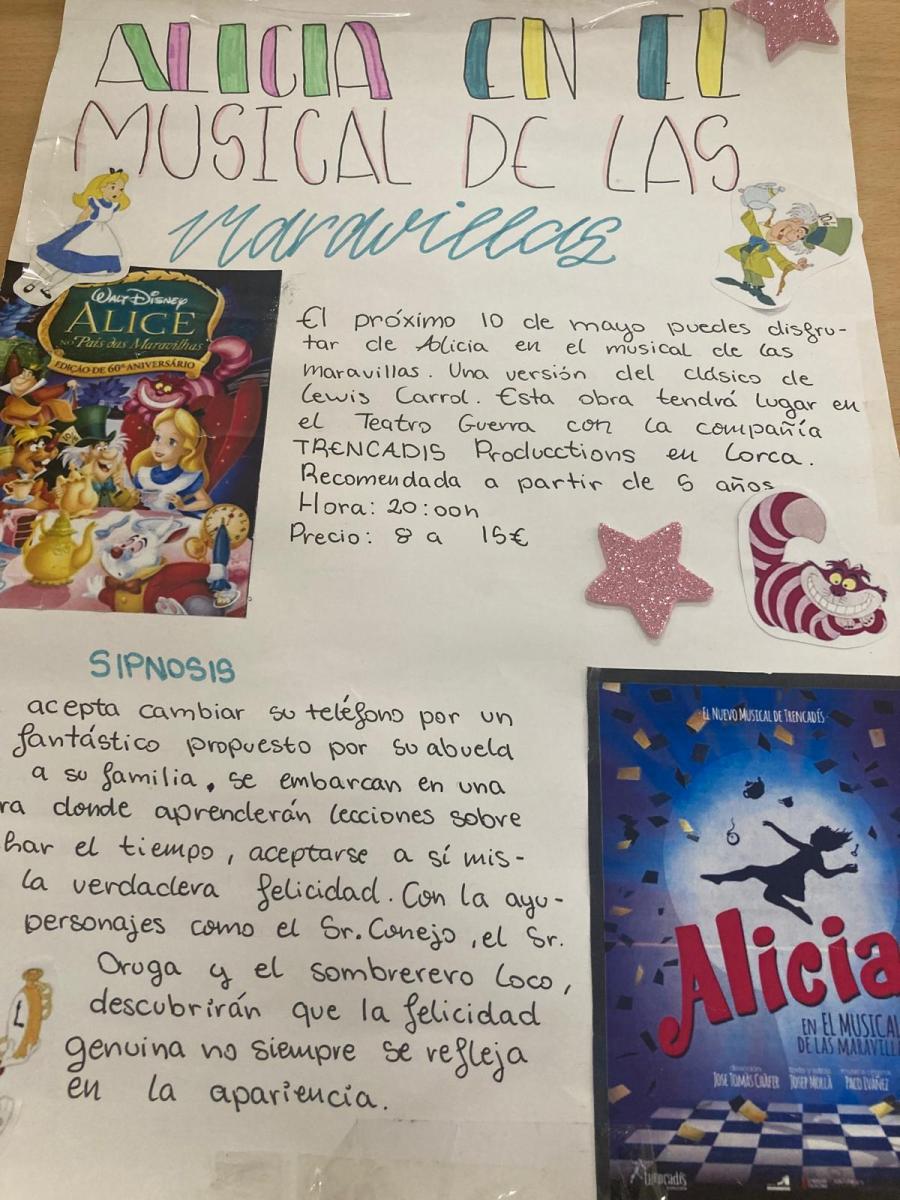 ALICIA EN EL
MUSICAL DE LAS
Maravillas
WALT DISNEY
ALICE
NO País das Maravilhas
EDIÇÃO DE 60º ANIVERSÁRIO
El próximo 10 de mayo puedes disfru-
tar de Alicia en el musical de las
maravillas. Una versión del clásico de
Lewis Carrol. Esta obra tendrá lugar en
el Teatro Guerra con la compañía
TRENCADIS Producctions en Lorca.
Recomendada a partir de 5 años
Hora: 20:00h
Precio: 8 a 15€
SIPNOSIS
acepta cambiar su teléfono por un
fantástico propuesto por su abuela
a su familia, se embarcan en una
ra donde aprenderán lecciones sobre
har el tiempo, aceptarse a sí mis-
la verdadera felicidad. Con la ayu-
personajes como el Sr. Conejo, el Sr.
Oruga y el sombrerero loco,
descubrirán que la felicidad
genuina no siempre se refleja
en la apariencia.
EL NUEVO MUSICAL DE TRENCADÍS
Alicia
EN EL MUSICAL
DE LAS MARAVILL
JOSE TOMÀS CHÀFER JOSEP MOLLÀ PACO IVÁÑEZ
Trencadís